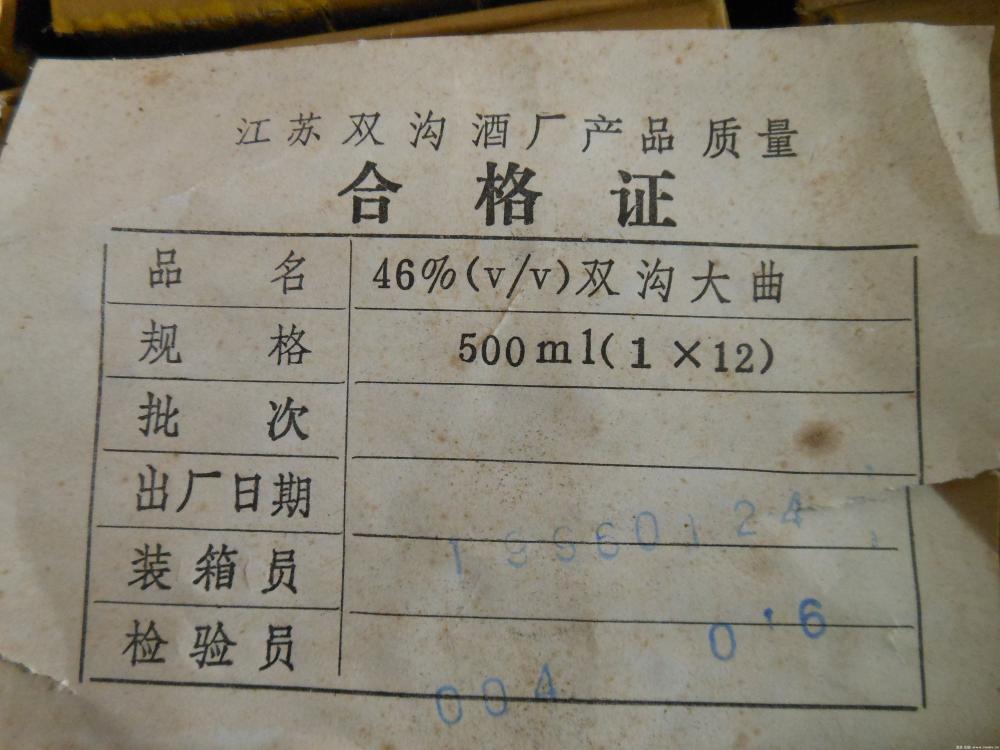 江苏双沟酒厂产品质量
合格证
品名 46%(v/v)双沟大曲
规格 500ml(1×12)
批次
出厂日期 19960124
装箱员 0·6
检验员 004